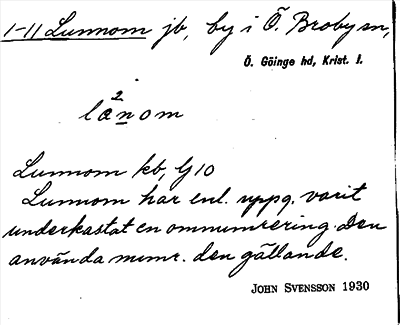 1-11 Lunnom jb, by i Ö. Broby sn,
Ö. Göinge hd, Krist. l.
2
lænom
Lunnom kb, G 10
Lunnom har enl. uppg. varit
underkastat en omnumrering. Den
använda numr. den gällande.
JOHN SVENSSON 1930